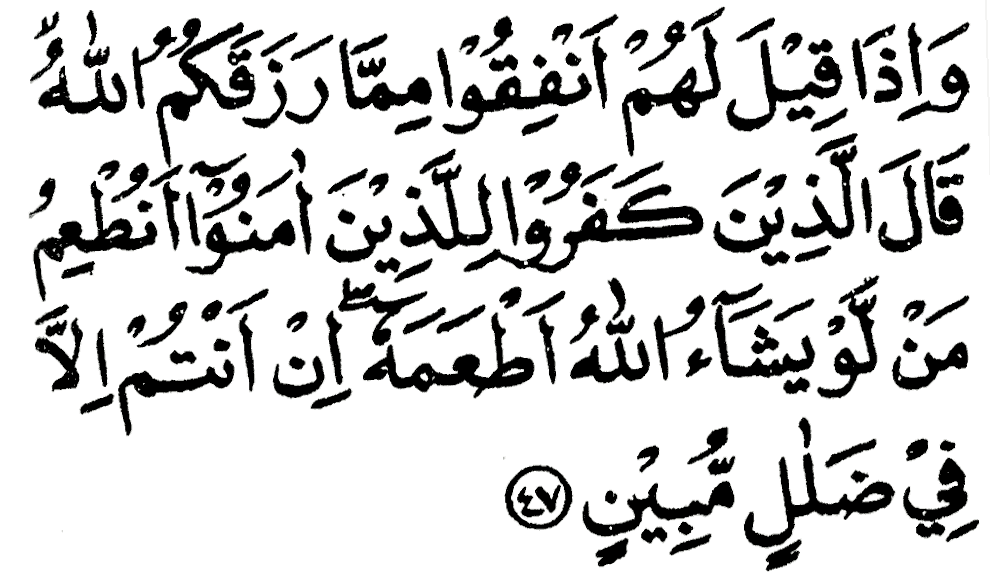 وَاِذَا قِيْلَ لَهُمْ اَنْفِقُوْا مِمَّا رَزَقَكُمُ اللّٰهُ ۙ
قَالَ الَّذِيْنَ كَفَرُوْا لِلَّذِيْنَ اٰمَنُوْٓا اَنُطْعِمُ
مَنْ لَّوْ يَشَآءُ اللّٰهُ اَطْعَمَهٗٓ ۖ اِنْ اَنْتُمْ اِلَّا
فِيْ ضَلٰلٍ مُّبِيْنٍ ﴿٤٧﴾